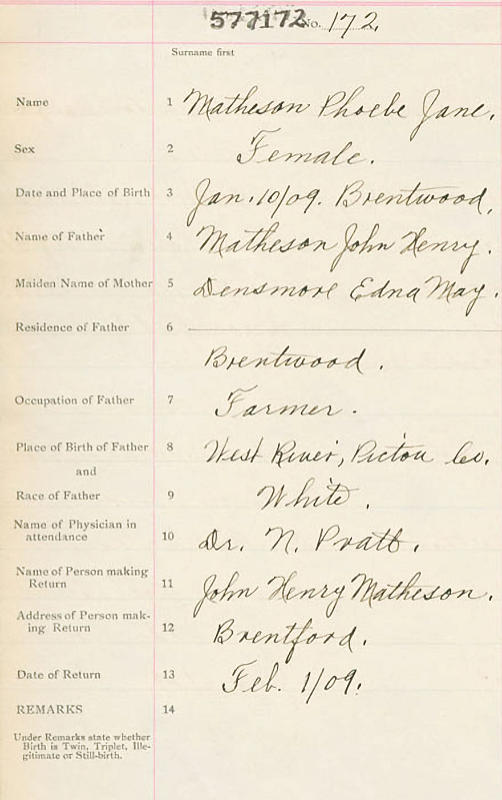 577172 No. 172.
Surname first
Name 1 Matheson Phoebe Jane.
Sex 2 Female.
Date and Place of Birth 3 Jan. 10/09. Brentwood,
Name of Father 4 Matheson John Henry.
Maiden Name of Mother 5 Densmore Edna May.
Residence of Father 6
Brentwood.
Occupation of Father 7 Farmer.
Place of Birth of Father 8 West River, Pictou Co.
and
Race of Father 9 White.
Name of Physician in
attendance 10 Dr. N. Pratt.
Name of Person making
Return 11 John Henry Matheson.
Address of Person mak-
ing Return 12 Brentford.
Date of Return 13 Feb. 1/09.
REMARKS 14
Under Remarks state whether
Birth is Twin, Triplet, Ille-
gitimate or Still-birth.